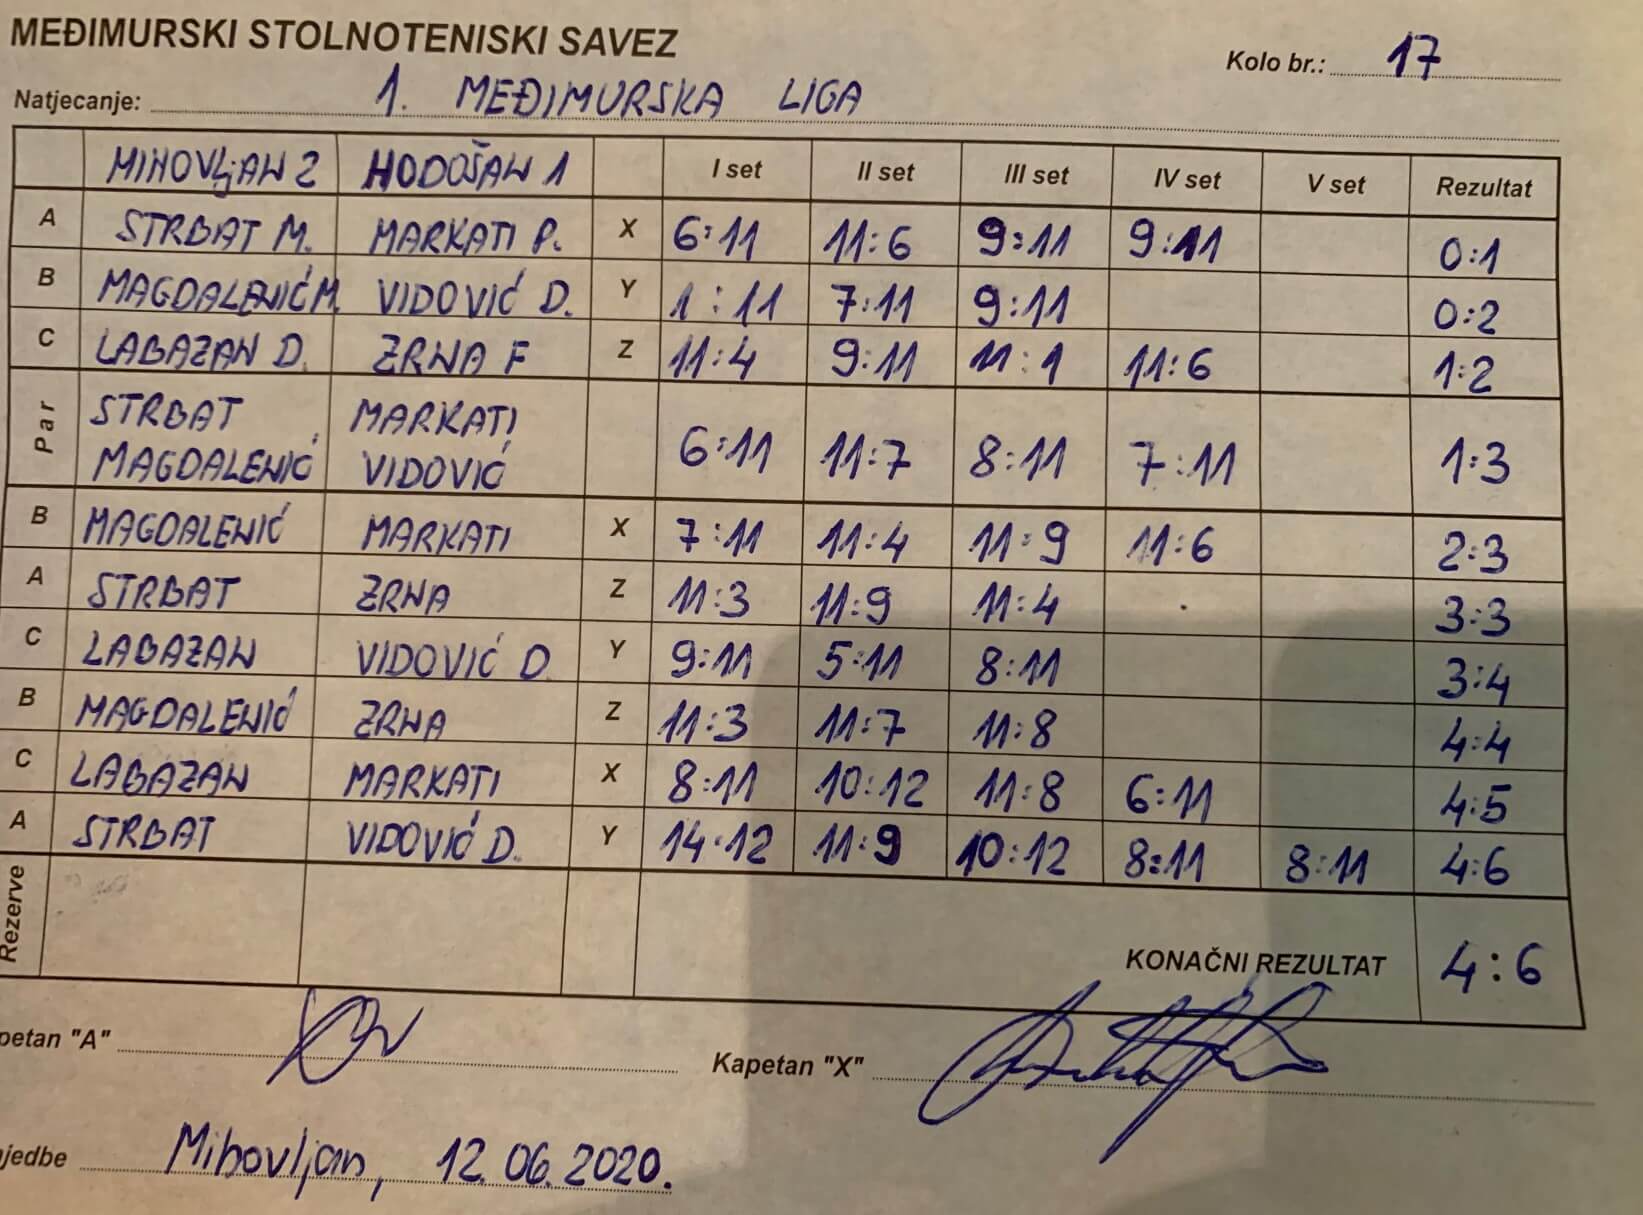 MEĐIMURSKI STOLNOTENISKI SAVEZ
Kolo br.: 17
Natjecanje: 1. MEĐIMURSKA LIGA
MIHOVLjAN 2 HODOŠAN 1 I set II set III set IV set V set Rezultat
A STRBAT M. MARKATI P. X 6:11 11:6 9:11 9:11 0:1
B MAGDALENIĆ M. VIDOVIĆ D. Y 1:11 7:11 9:11 0:2
C LABAZAN D. ZRNA F Z 11:4 9:11 11:1 11:6 1:2
Par STRBAT MARKATI
MAGDALENIĆ VIDOVIĆ 6:11 11:7 8:11 7:11 1:3
B MAGDALENIĆ MARKATI X 7:11 11:4 11:9 11:6 2:3
A STRBAT ZRNA Z 11:3 11:9 11:4 3:3
C LABAZAN VIDOVIĆ D Y 9:11 5:11 8:11 3:4
B MAGDALENIĆ ZRNA Z 11:3 11:7 11:8 4:4
C LABAZAN MARKATI X 8:11 10:12 11:8 6:11 4:5
A STRBAT VIDOVIĆ D. Y 14:12 11:9 10:12 8:11 8:11 4:6
Rezerve KONAČNI REZULTAT 4:6
petan "A" Kapetan "X"
jedbe Mihovljan, 12.06.2020.